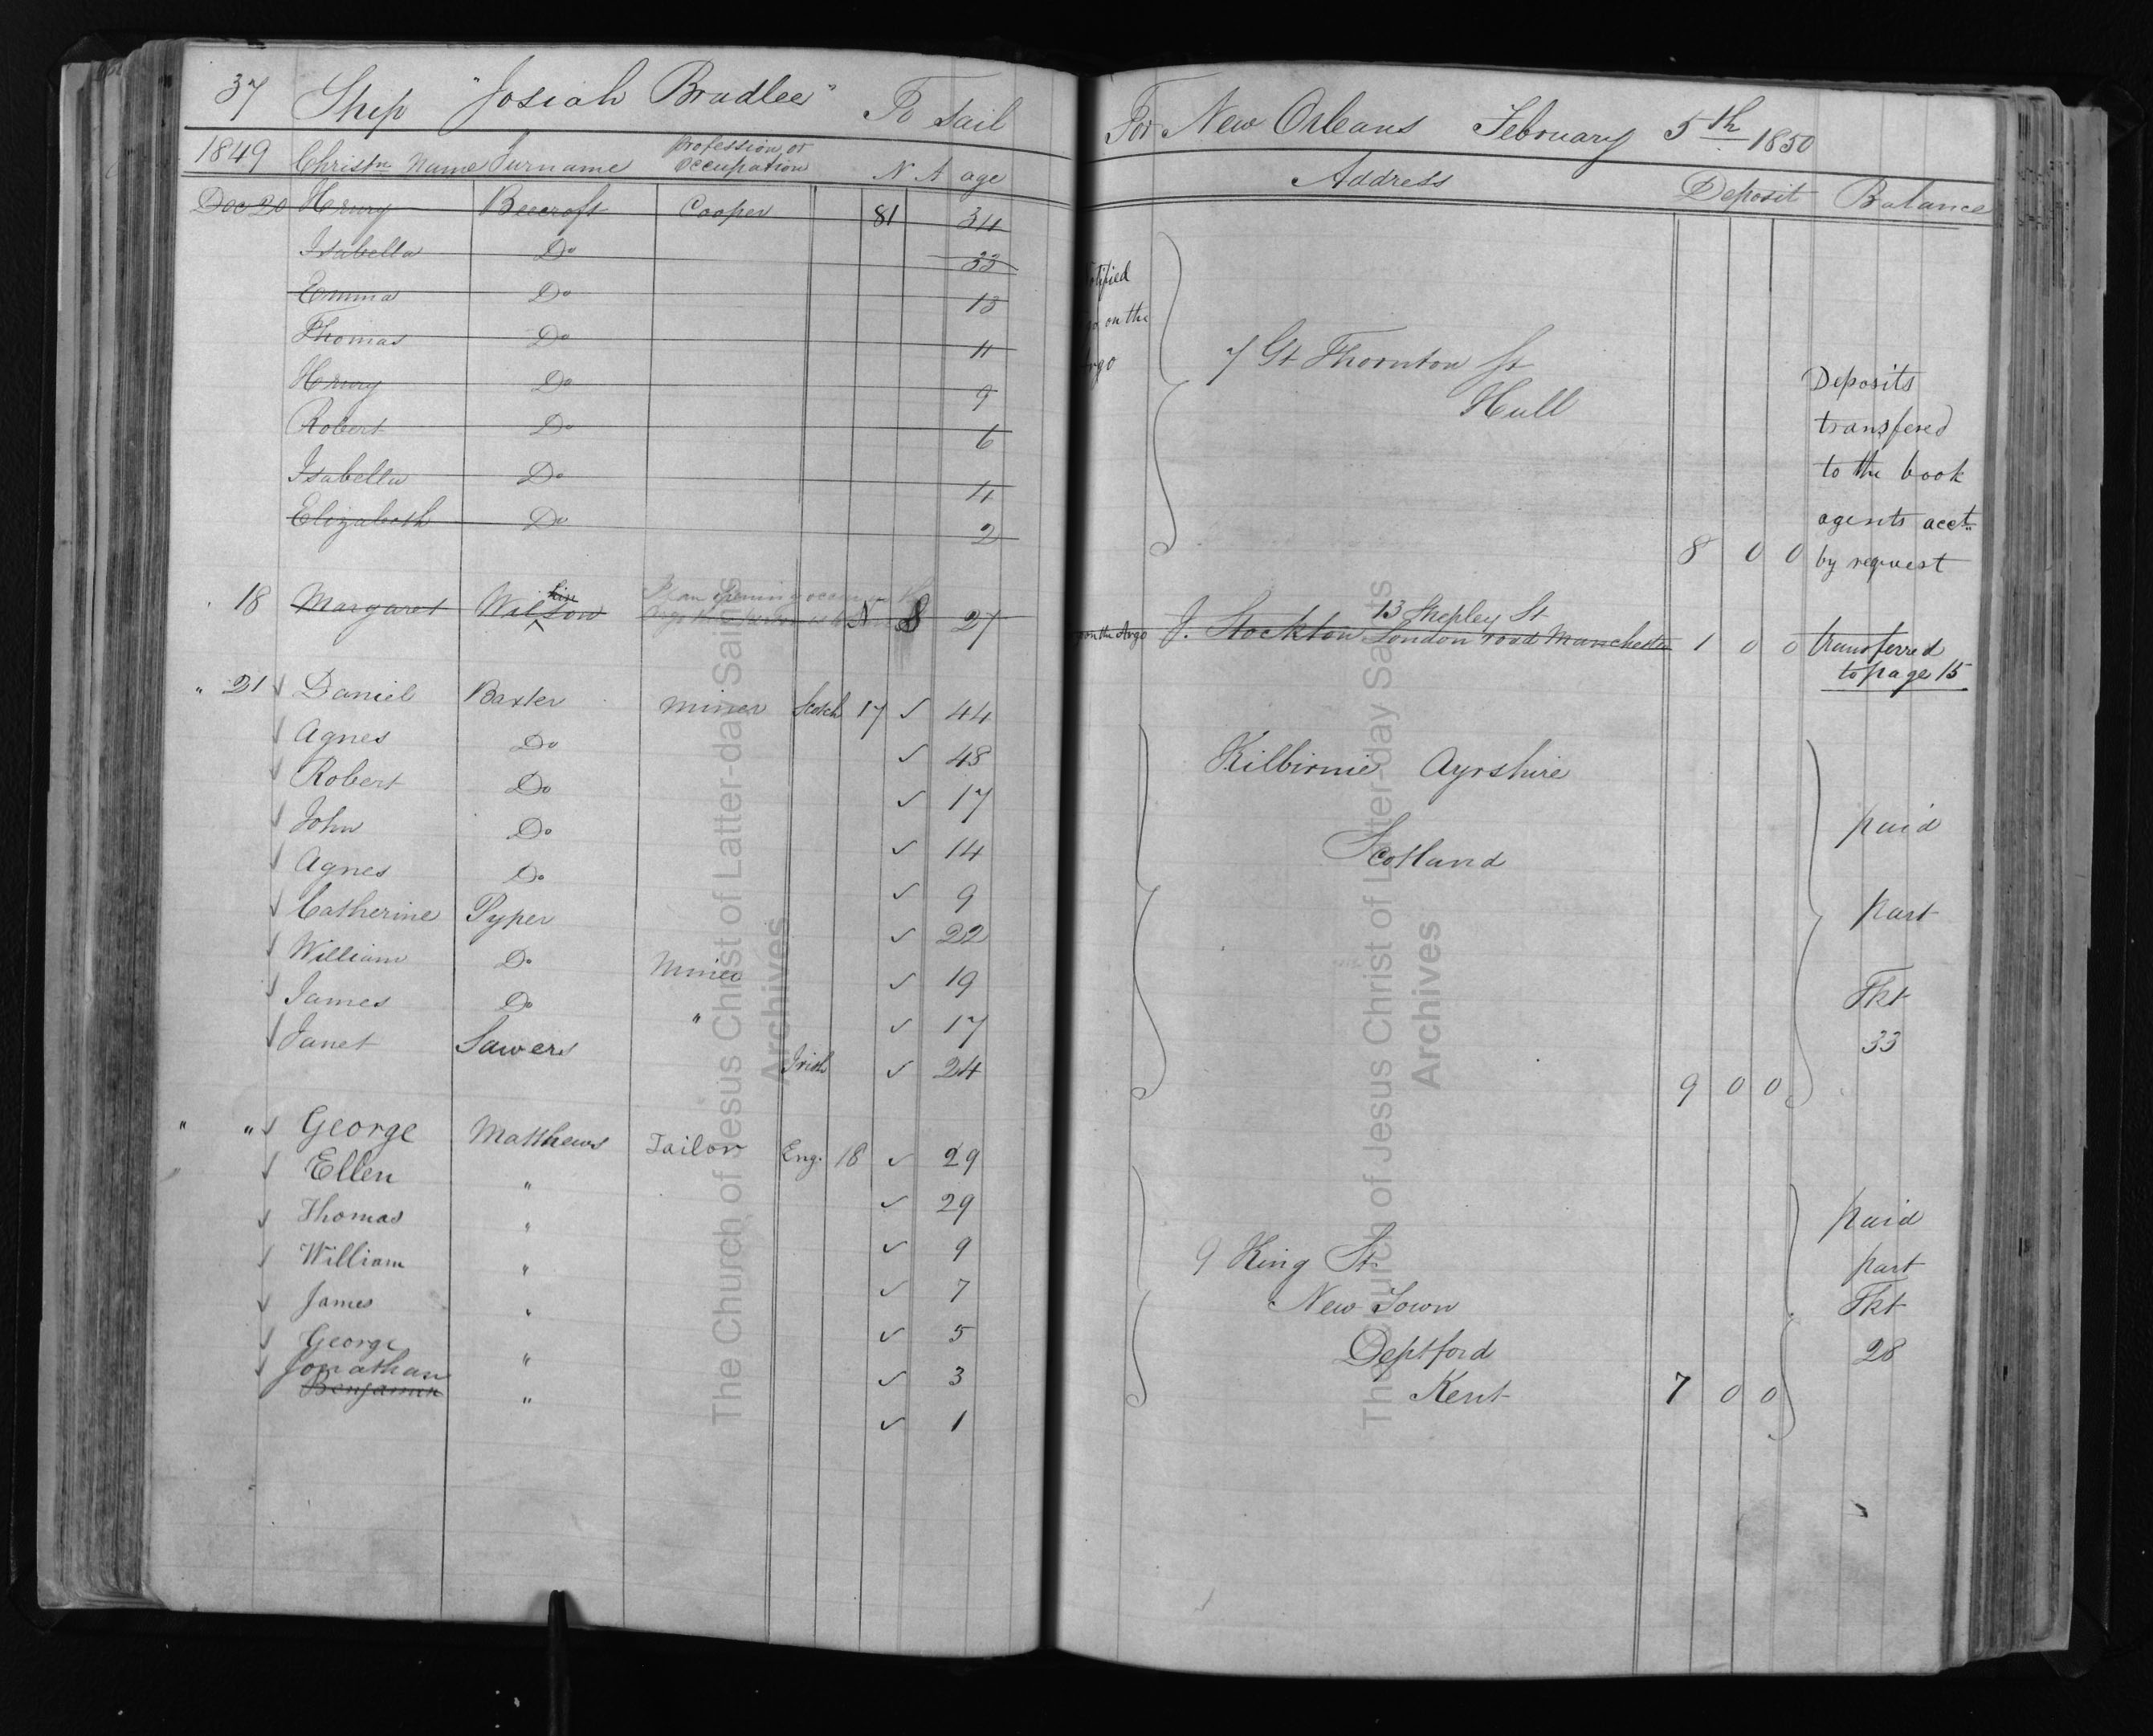 37 Ship "Josiah Bradlee" To Sail
1849 Christn Name Surname Profession or Occupation N A age
Dec 20 Henry Beecroft Cooper 81 34
Isabella Do 33
Emma Do 13
Thomas Do 11
Henry Do 9
Robert Do 6
Isabella Do 4
Elizabeth Do 2
18 Margaret Wilson 27
" 21 Daniel Baxter Miner Scotch 17 44
Agnes Do 48
Robert Do 17
John Do 14
Agnes Do 9
Catherine Pyper 22
William Do Miner 19
James Do " 17
Janet Sawers Irish 24
" " George Matthews Tailor Eng. 18 29
Ellen " 29
Thomas " 9
William " 7
James " 5
George " 3
Jonathan
Benjamin " 1
The Church of Jesus Christ of Latter-day Saints
Archives
For New Orleans February 5th 1850
Address Deposit Balance
on the
7 Gt Thornton St
Hull
8 0 0
Deposits
transfered
to the book
agents acct.
by request
13 Shepley St
on the Argo J. Stockton London road Manchester 1 0 0 transferred
to page 15
Kilbirnie Ayrshire
Scotland
9 0 0
paid
part
Tkt
33
9 King St
New Town
Deptford
Kent 7 0 0
paid
part
Tkt
28
The Church of Jesus Christ of Latter-day Saints
Archives